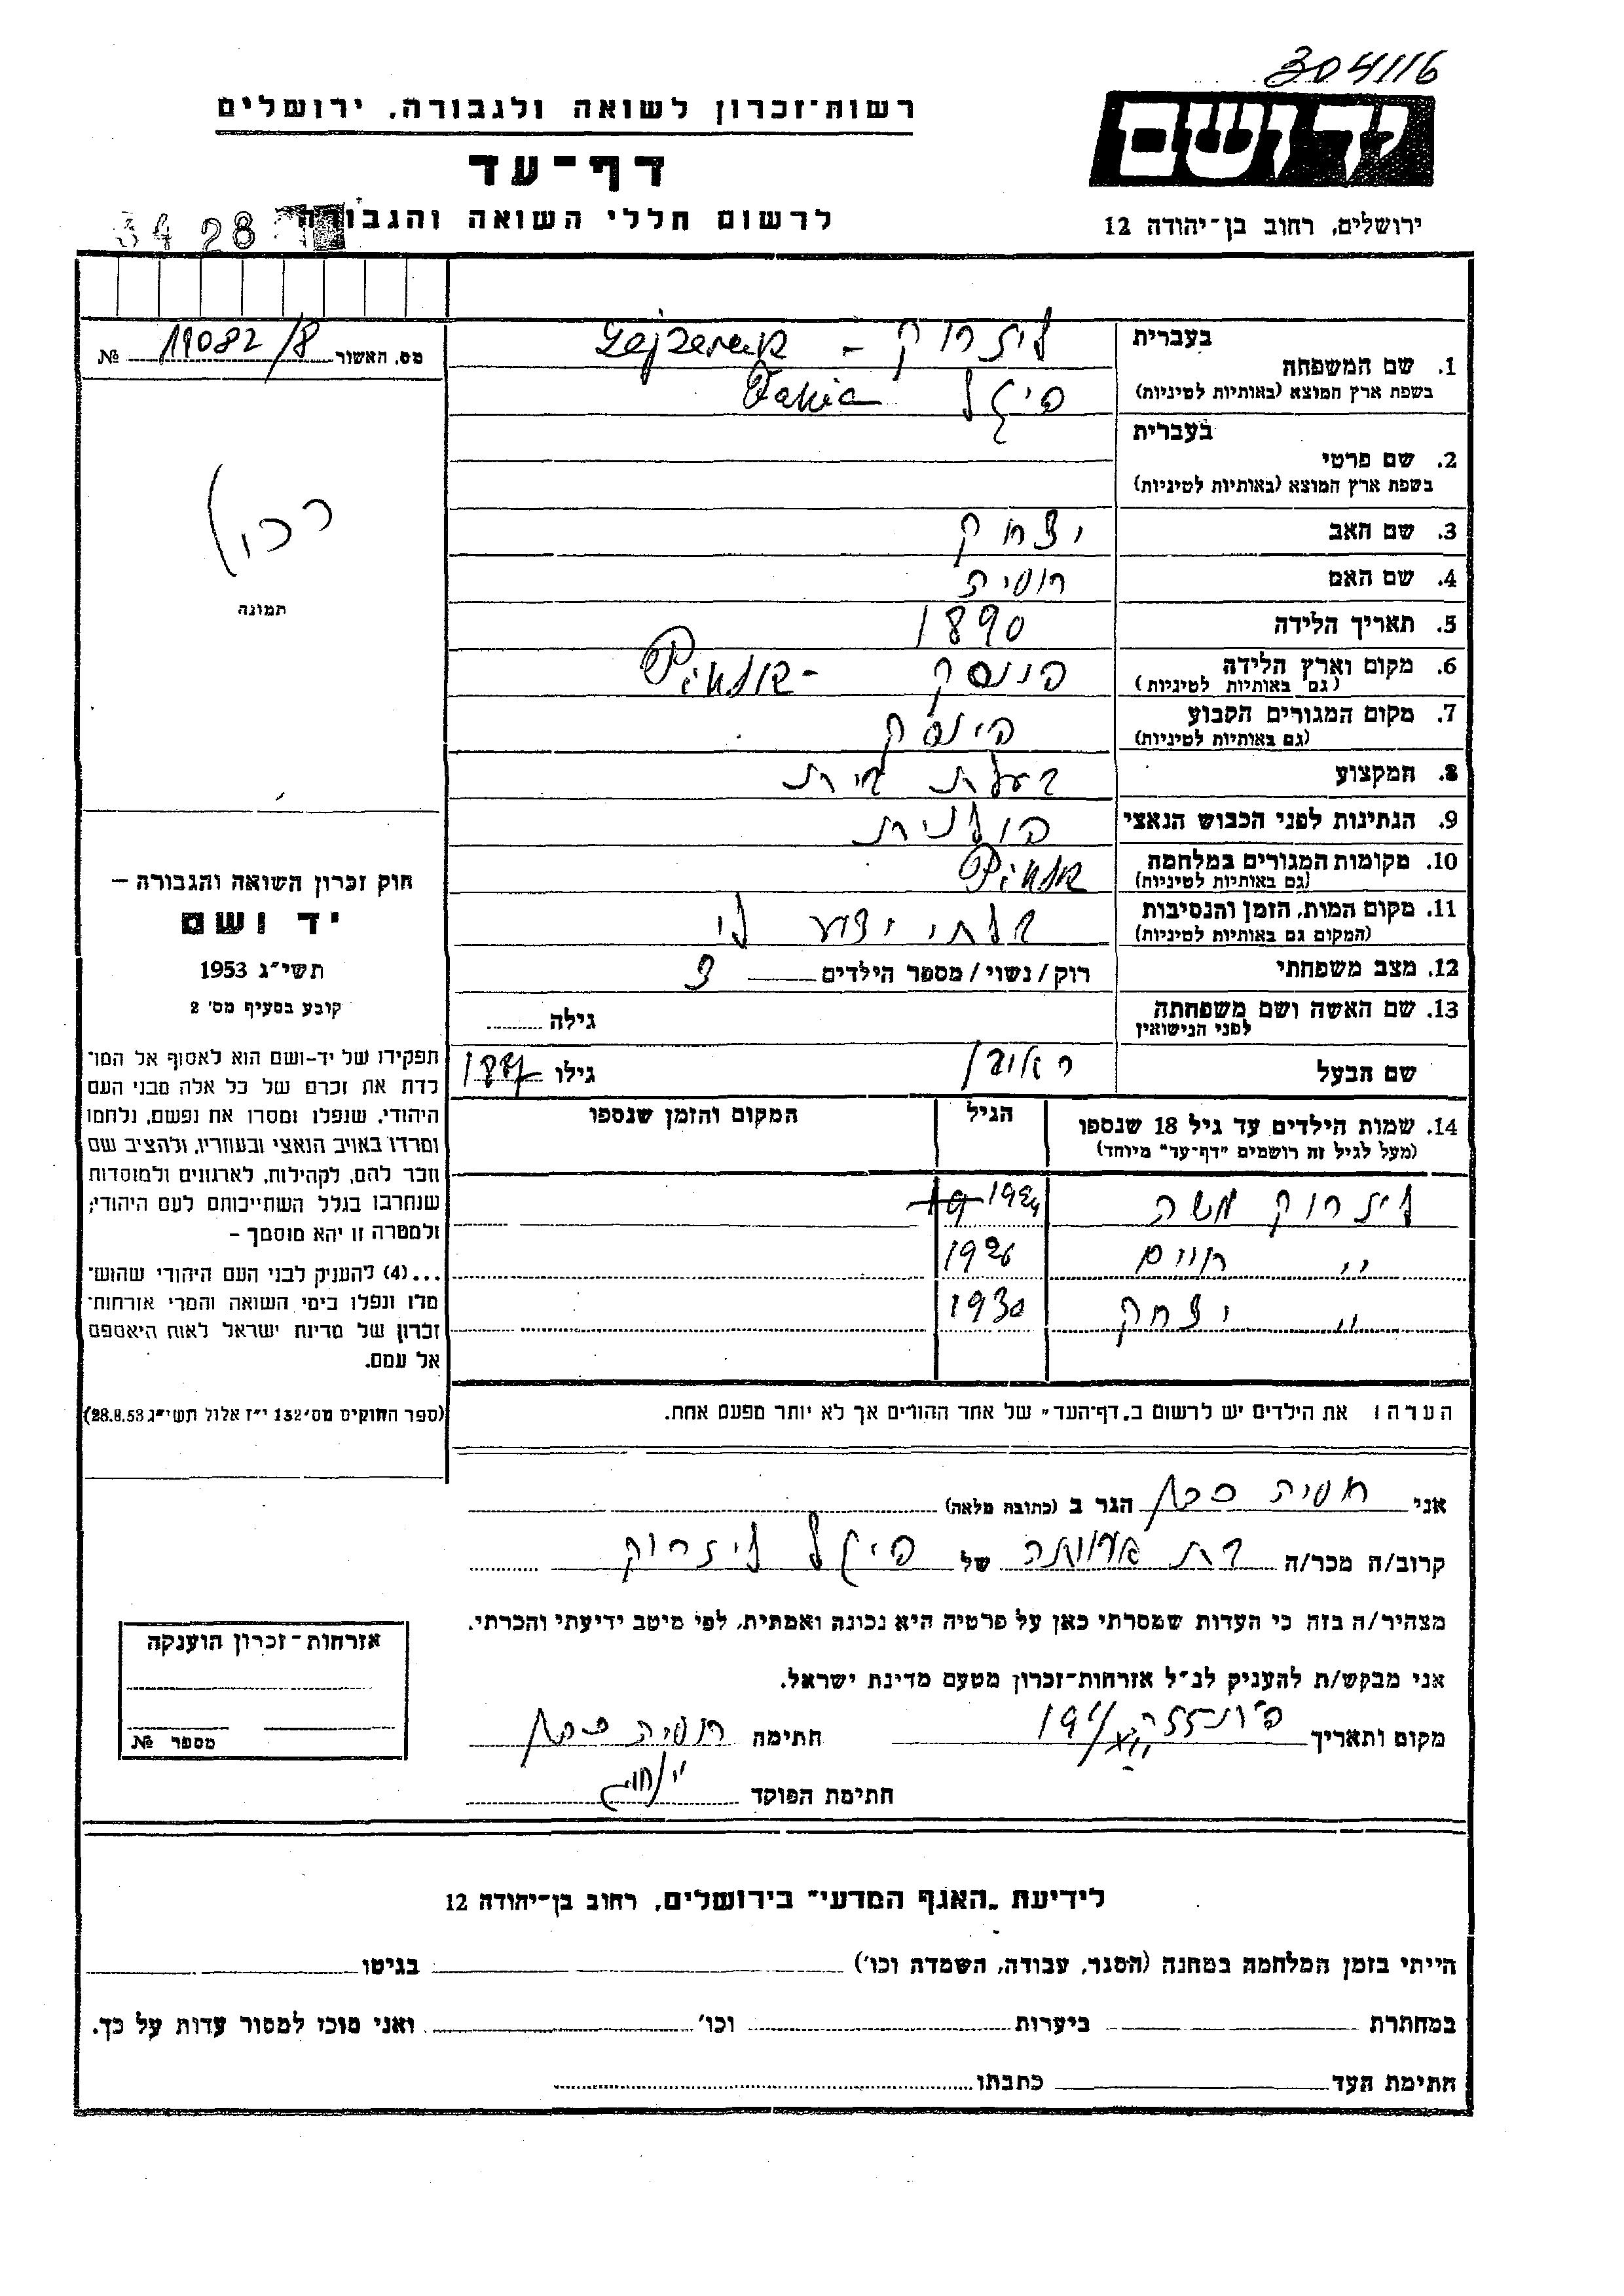 304116
רשות־זכרון לשואה ולגבורה, ירושלים
יד ושם
דף־עד
לרשום חללי השואה והגבורה
ירושלים, רחוב בן־יהודה 12
34 28
מס. האשור 11082/8 №
בעברית
ליזרוק -
1. שם המשפחה
בשפת ארץ המוצא (באותיות לטיניות)
פיגל
בעברית
2. שם פרטי
בשפת ארץ המוצא (באותיות לטיניות)
3. שם האב יצחק
4. שם האם חסיה
5. תאריך הלידה 1890
6. מקום וארץ הלידה פינסק - Pińsk
(גם באותיות לטיניות)
7. מקום המגורים הקבוע פינסק
(גם באותיות לטיניות)
8. המקצוע בעלת בית
9. הנתינות לפני הכבוש הנאצי פולנית
10. מקומות המגורים במלחמה Pińsk
(גם באותיות לטיניות)
11. מקום המות, הזמן והנסיבות בלתי ידוע לי
(המקום גם באותיות לטיניות)
12. מצב משפחתי רוק / נשוי / מספר הילדים 3
13. שם האשה ושם משפחתה גילה
לפני הנישואין
שם הבעל ראובן גילו
14. שמות הילדים עד גיל 18 שנספו הגיל המקום והזמן שנספו
(מעל לגיל זה רושמים "דף־עד" מיוחד)
ליזרוק משה 1924
" חיים 1926
" יצחק 1930
הערה: את הילדים יש לרשום ב"דף־העד" של אחד ההורים אך לא יותר מפעם אחת.
תמונה
חוק זכרון השואה והגבורה –
יד ושם
תשי"ג 1953
קובע בסעיף מס' 2
תפקידו של יד-ושם הוא לאסוף אל המו־
לדת את זכרם של כל אלה מבני העם
היהודי, שנפלו ומסרו את נפשם, נלחמו
ומרדו באויב הנאצי ובעוזריו, ולהציב שם
וזכר להם, לקהילות, לארגונים ולמוסדות
שנחרבו בגלל השתייכותם לעם היהודי;
ולמטרה זו יהא מוסמך –
...(4) להעניק לבני העם היהודי שהוש־
מדו ונפלו בימי השואה והמרי אזרחות־
זכרון של מדינת ישראל לאות היאספם
אל עמם.
(ספר החוקים מס' 132 י"ז אלול תשי"ג 28.8.53)
אני חסיה הגר ב (כתובת מלאה)
קרוב/ה מכר/ה בת אחותה של פיגל ליזרוק
מצהיר/ה בזה כי העדות שמסרתי כאן על פרטיה היא נכונה ואמתית, לפי מיטב ידיעתי והכרתי.
אני מבקש/ת להעניק לנ"ל אזרחות־זכרון מטעם מדינת ישראל.
מקום ותאריך חתימה חסיה
חתימת הפוקד
אזרחות־זכרון הוענקה
מספר №
לידיעת „האגף המדעי" בירושלים, רחוב בן־יהודה 12
הייתי בזמן המלחמה במחנה (הסגר, עבודה, השמדה וכו') בגיטו
במחתרת ביערות וכו' ואני מוכן למסור עדות על כך.
חתימת העד כתבתו